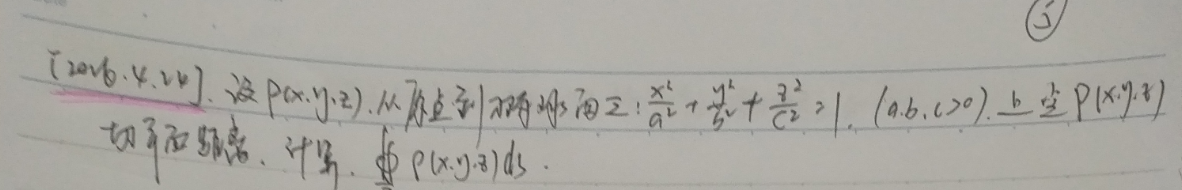 ⑤
[2026.4.24]. 设 P(x.y.z). 从原点到椭球面Σ: x²/a² + y²/b² + z²/c² = 1. (a.b.c>0). 上 点 P(x.y.z)
切平面距离. 计算. ∯ ρ(x.y.z)ds.